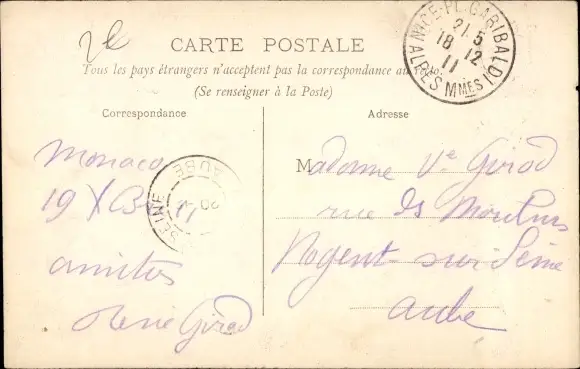 CARTE POSTALE
Tous les pays étrangers n'acceptent pas la correspondance au
(Se renseigner à la Poste)
NICE-PL. GARIBALDI
21 5
18 12
11
ALPES MMES
Correspondance
Monaco
19 XB 11
amitiés
René Girod
SEINE
AUBE
20
Adresse
Madame Ve Girod
rue des Moulins
Nogent-sur-Seine
Aube